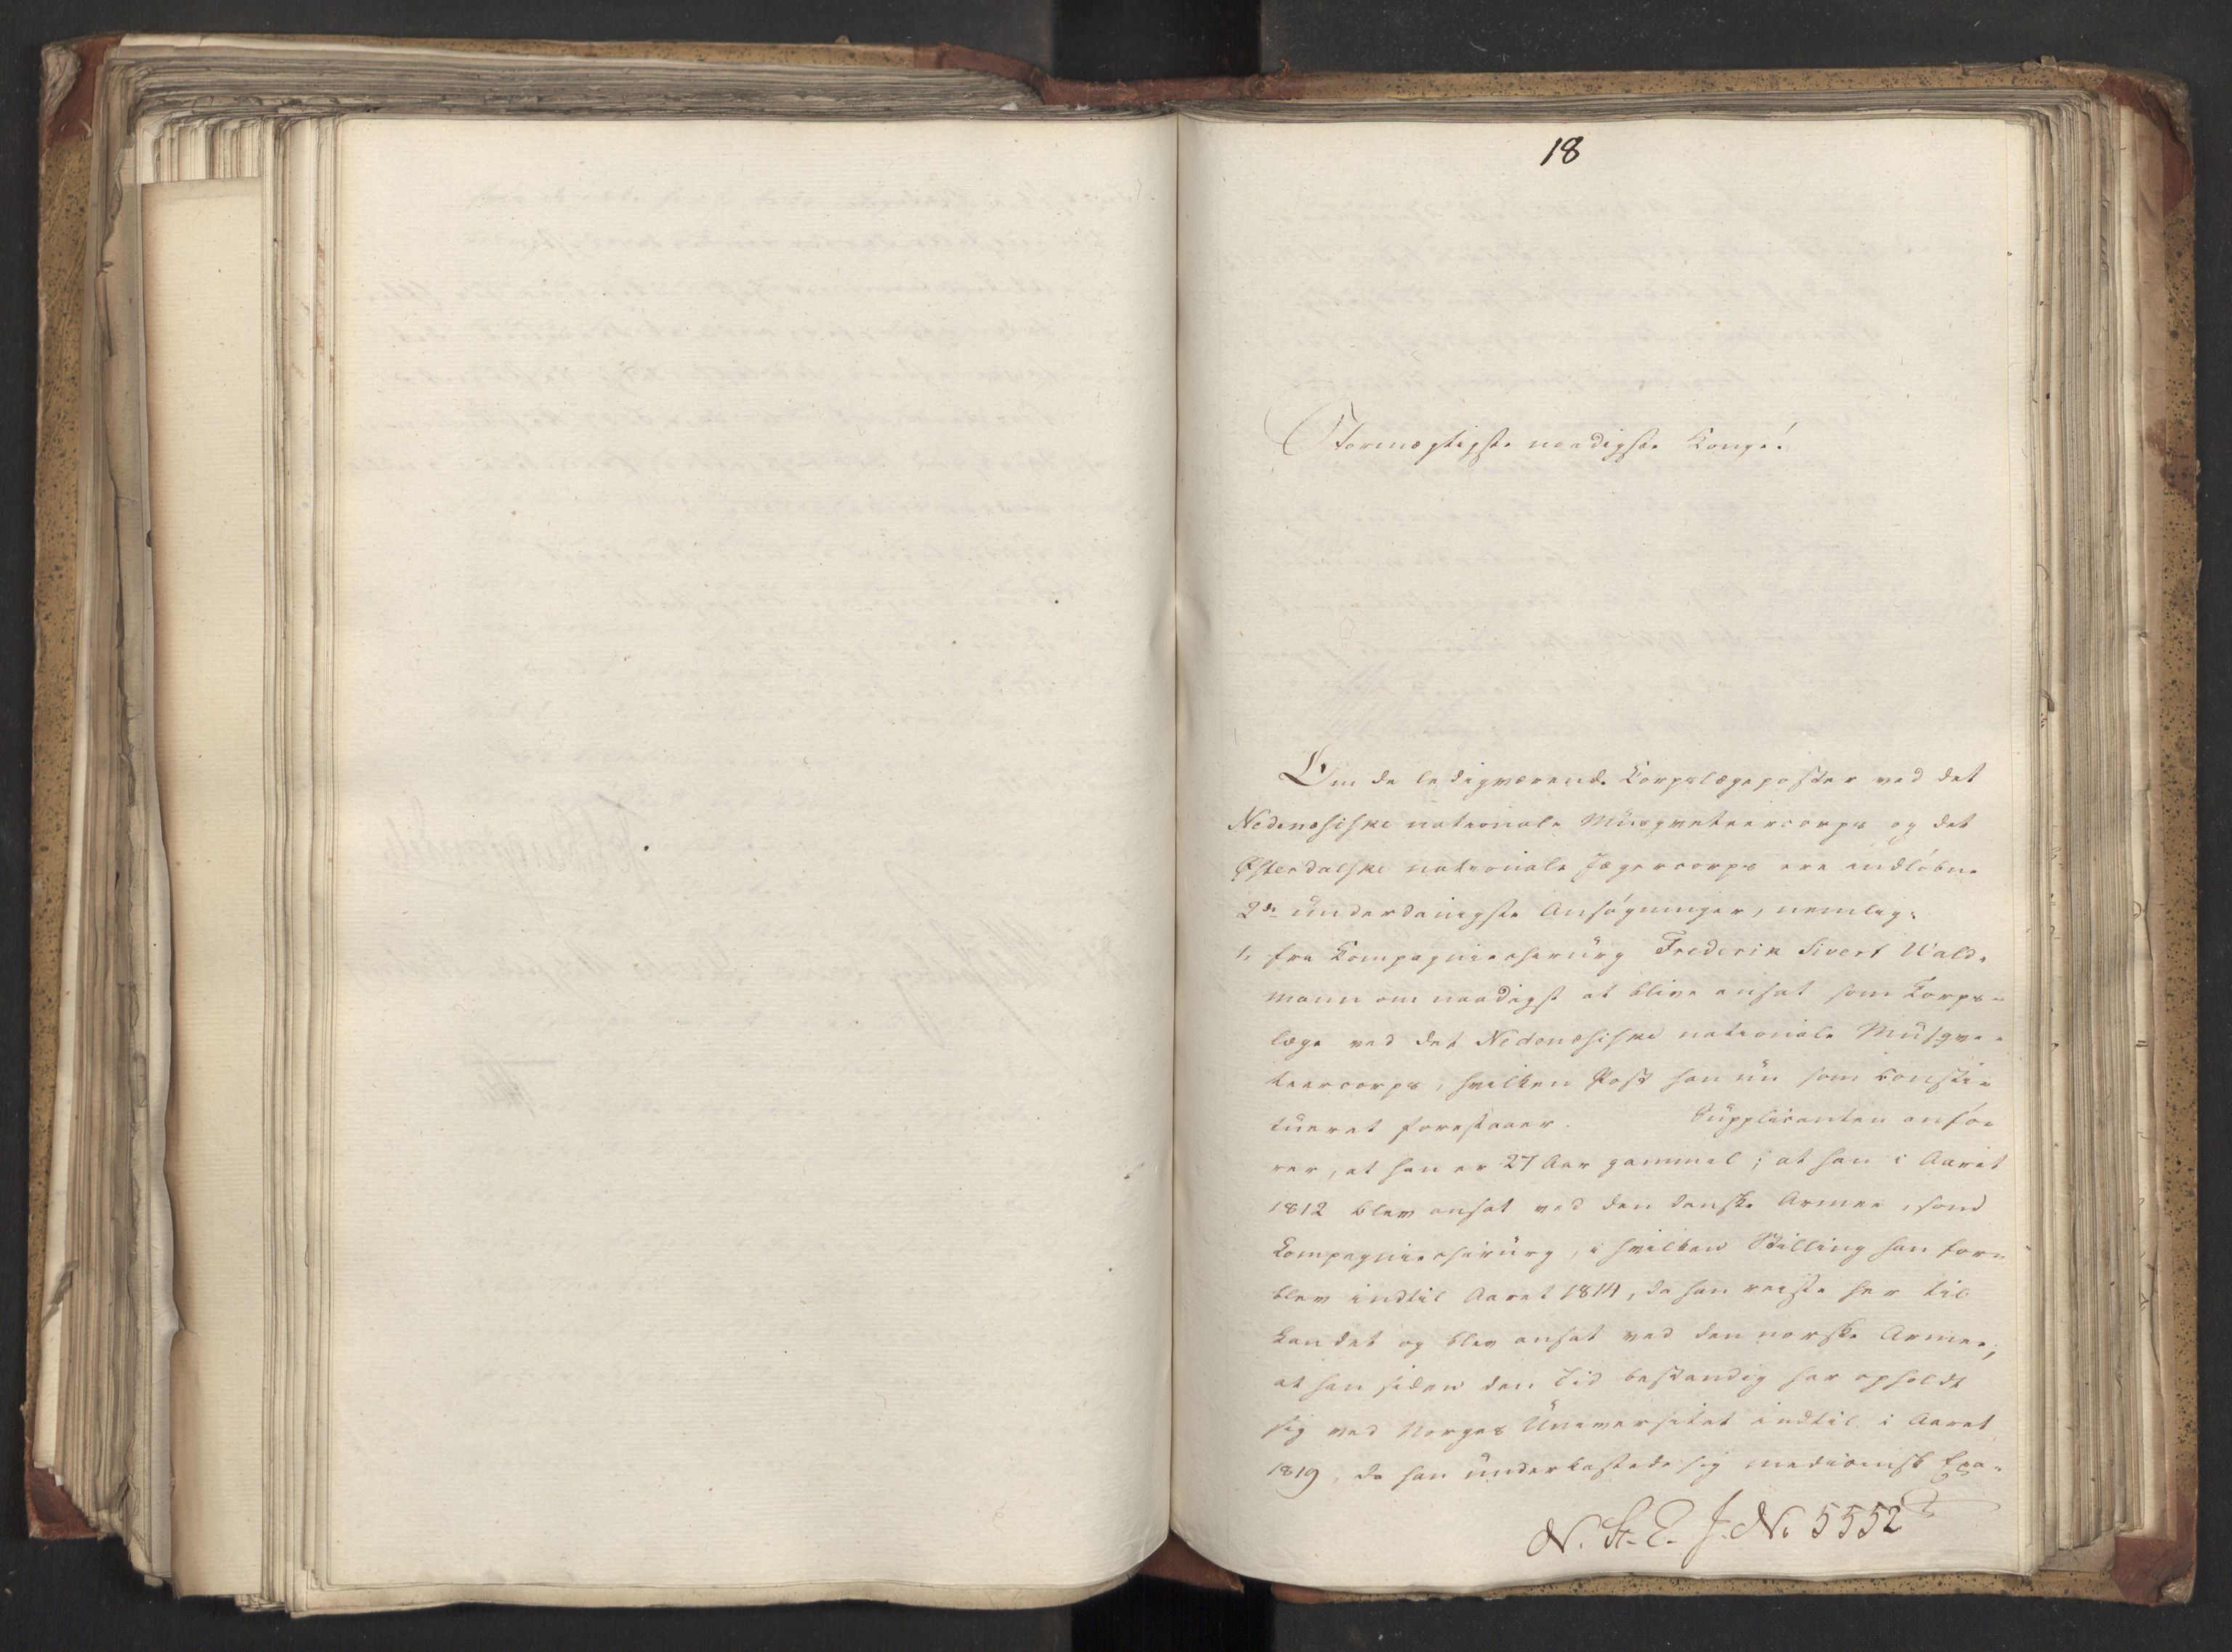 18
Stormægtigste naadigste Konge!
Om de ledigværende Korpslægeposter ved det
Nedenesiske nationale Müsqveteercorps og det
Østerdalske nationale Jægercorps ere indløbne
2de ünderdanigste Ansøgninger, nemlig:
1, fra Kompagniechirürg Frederik Sivert Wald-
mann om naadigst at blive ansat som Korps-
læge ved det Nedenesiske nationale Müsqve-
teercorps, hvilken Post han nü som consti-
tueret forestaaer. Süpplicanten anfø-
rer, at han er 27 Aar gammel; at han i Aaret
1812 blev ansat ved den danske Armee, som
Kompagniechirürg, i hvilken Stilling han for-
blev indtil Aaret 1814, da han reiste her til
Landet og blev ansat ved den norske Armee,
at han siden den Tid bestandig har opholdt
sig ved Norges Üniversitet indtil i Aaret
1819, da han ünderkastede sig medicinsk Exa-
N. St. E. J. No 5552